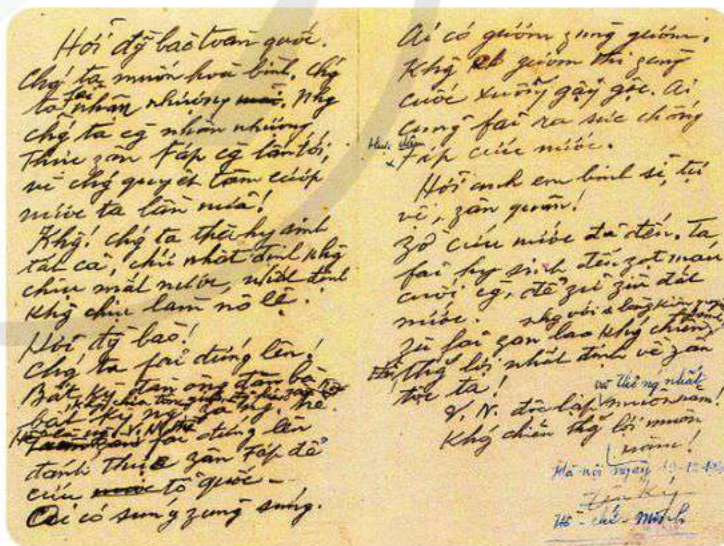 Hỡi đg̃ bào toàn quốc.
Chǵ ta muốn hoà bình, chǵ
ta fải nhân nhượng. Nhg
chǵ ta cg̀ nhân nhượng
thực zân Fáp cg̀ lấn tới,
vì chǵ quyết tâm cướp
nước ta lần nữa!
Khg̀! chǵ ta thà hy sinh
tất cả, chứ nhất định khg
chịu mất nước, nhất định
khg̀ chịu làm nô lệ.
Hỡi đg̀ bào!
Chǵ ta fải đứng lên!
Bất kỳ đàn ông, đàn bà
bất kỳ ng` già ng` trẻ.
fải đứng lên
đánh thực zân Fáp để
cứu nước tổ quốc –
Ai có súng zùng súng.
Ai có gươm zùng gươm.
Khg̀ có gươm thì zùng
cuốc xuổng gậy gộc. Ai
cũng fải ra sức chống
thực zân Fáp cứu nước.
Hỡi anh em binh sĩ, tự
vệ, zân quân!
Zờ cứu nước đã đến. Ta
fải hy sinh đến zọt máu
cuối cg̀, để zữ zìn đất
nước.
Zù fải zan lao khǵ chiến
thǵ lợi nhất định về zân
tộc ta!
và thống nhất
V.N. độc lập muôn năm!
Khǵ chiến thǵ lợi muôn
năm!
Hà nội ngày 19-12-
Hồ-chí-Minh